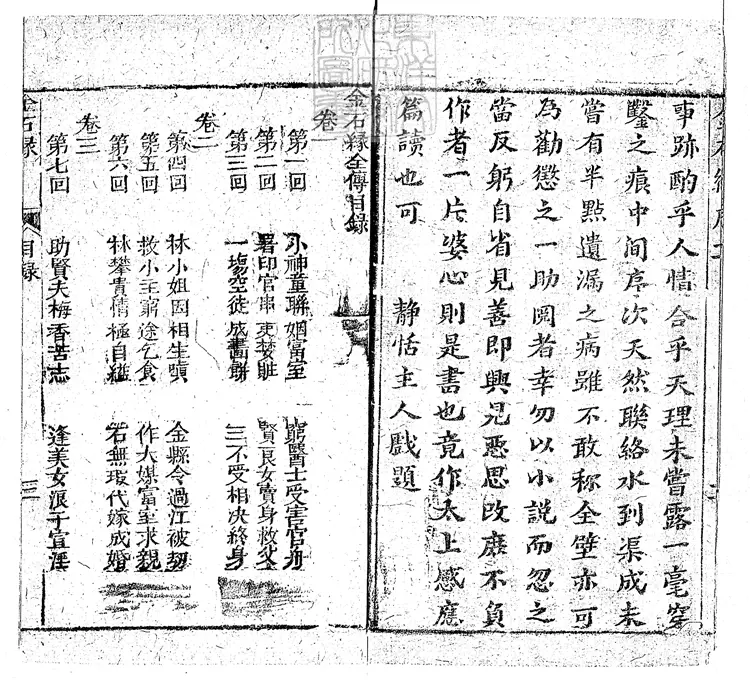 事跡酌乎人情合乎天理未嘗露一毫穿
鑿之痕中間序次天然聯絡水到渠成未
嘗有半點遺漏之病雖不敢称全璧亦可
為勸懲之一助閱者幸勿以小說而忽之
當反躬自省見善即興見惡思改庶不負
作者一片婆心則是書也竟作太上感應
篇讀也可
靜恬主人戲題
金石緣全傳目錄
卷一
第一回 小神童聯姻富室 窮醫士受害官舟
第二回 署印官串吏婪贓 賢良女賣身救父
第三回 一塲空徒成畵餅 三不受相决終身
卷二
第四回 林小姐因相生嗔 金縣令過江被刼
第五回 救小主窮途乞食 作大媒富室求親
第六回 林攀貴情極自縊 石無瑕代嫁成婚
卷三
第七回 助賢夫梅香苦志 逢美女浪子宣淫
金石緣
目錄